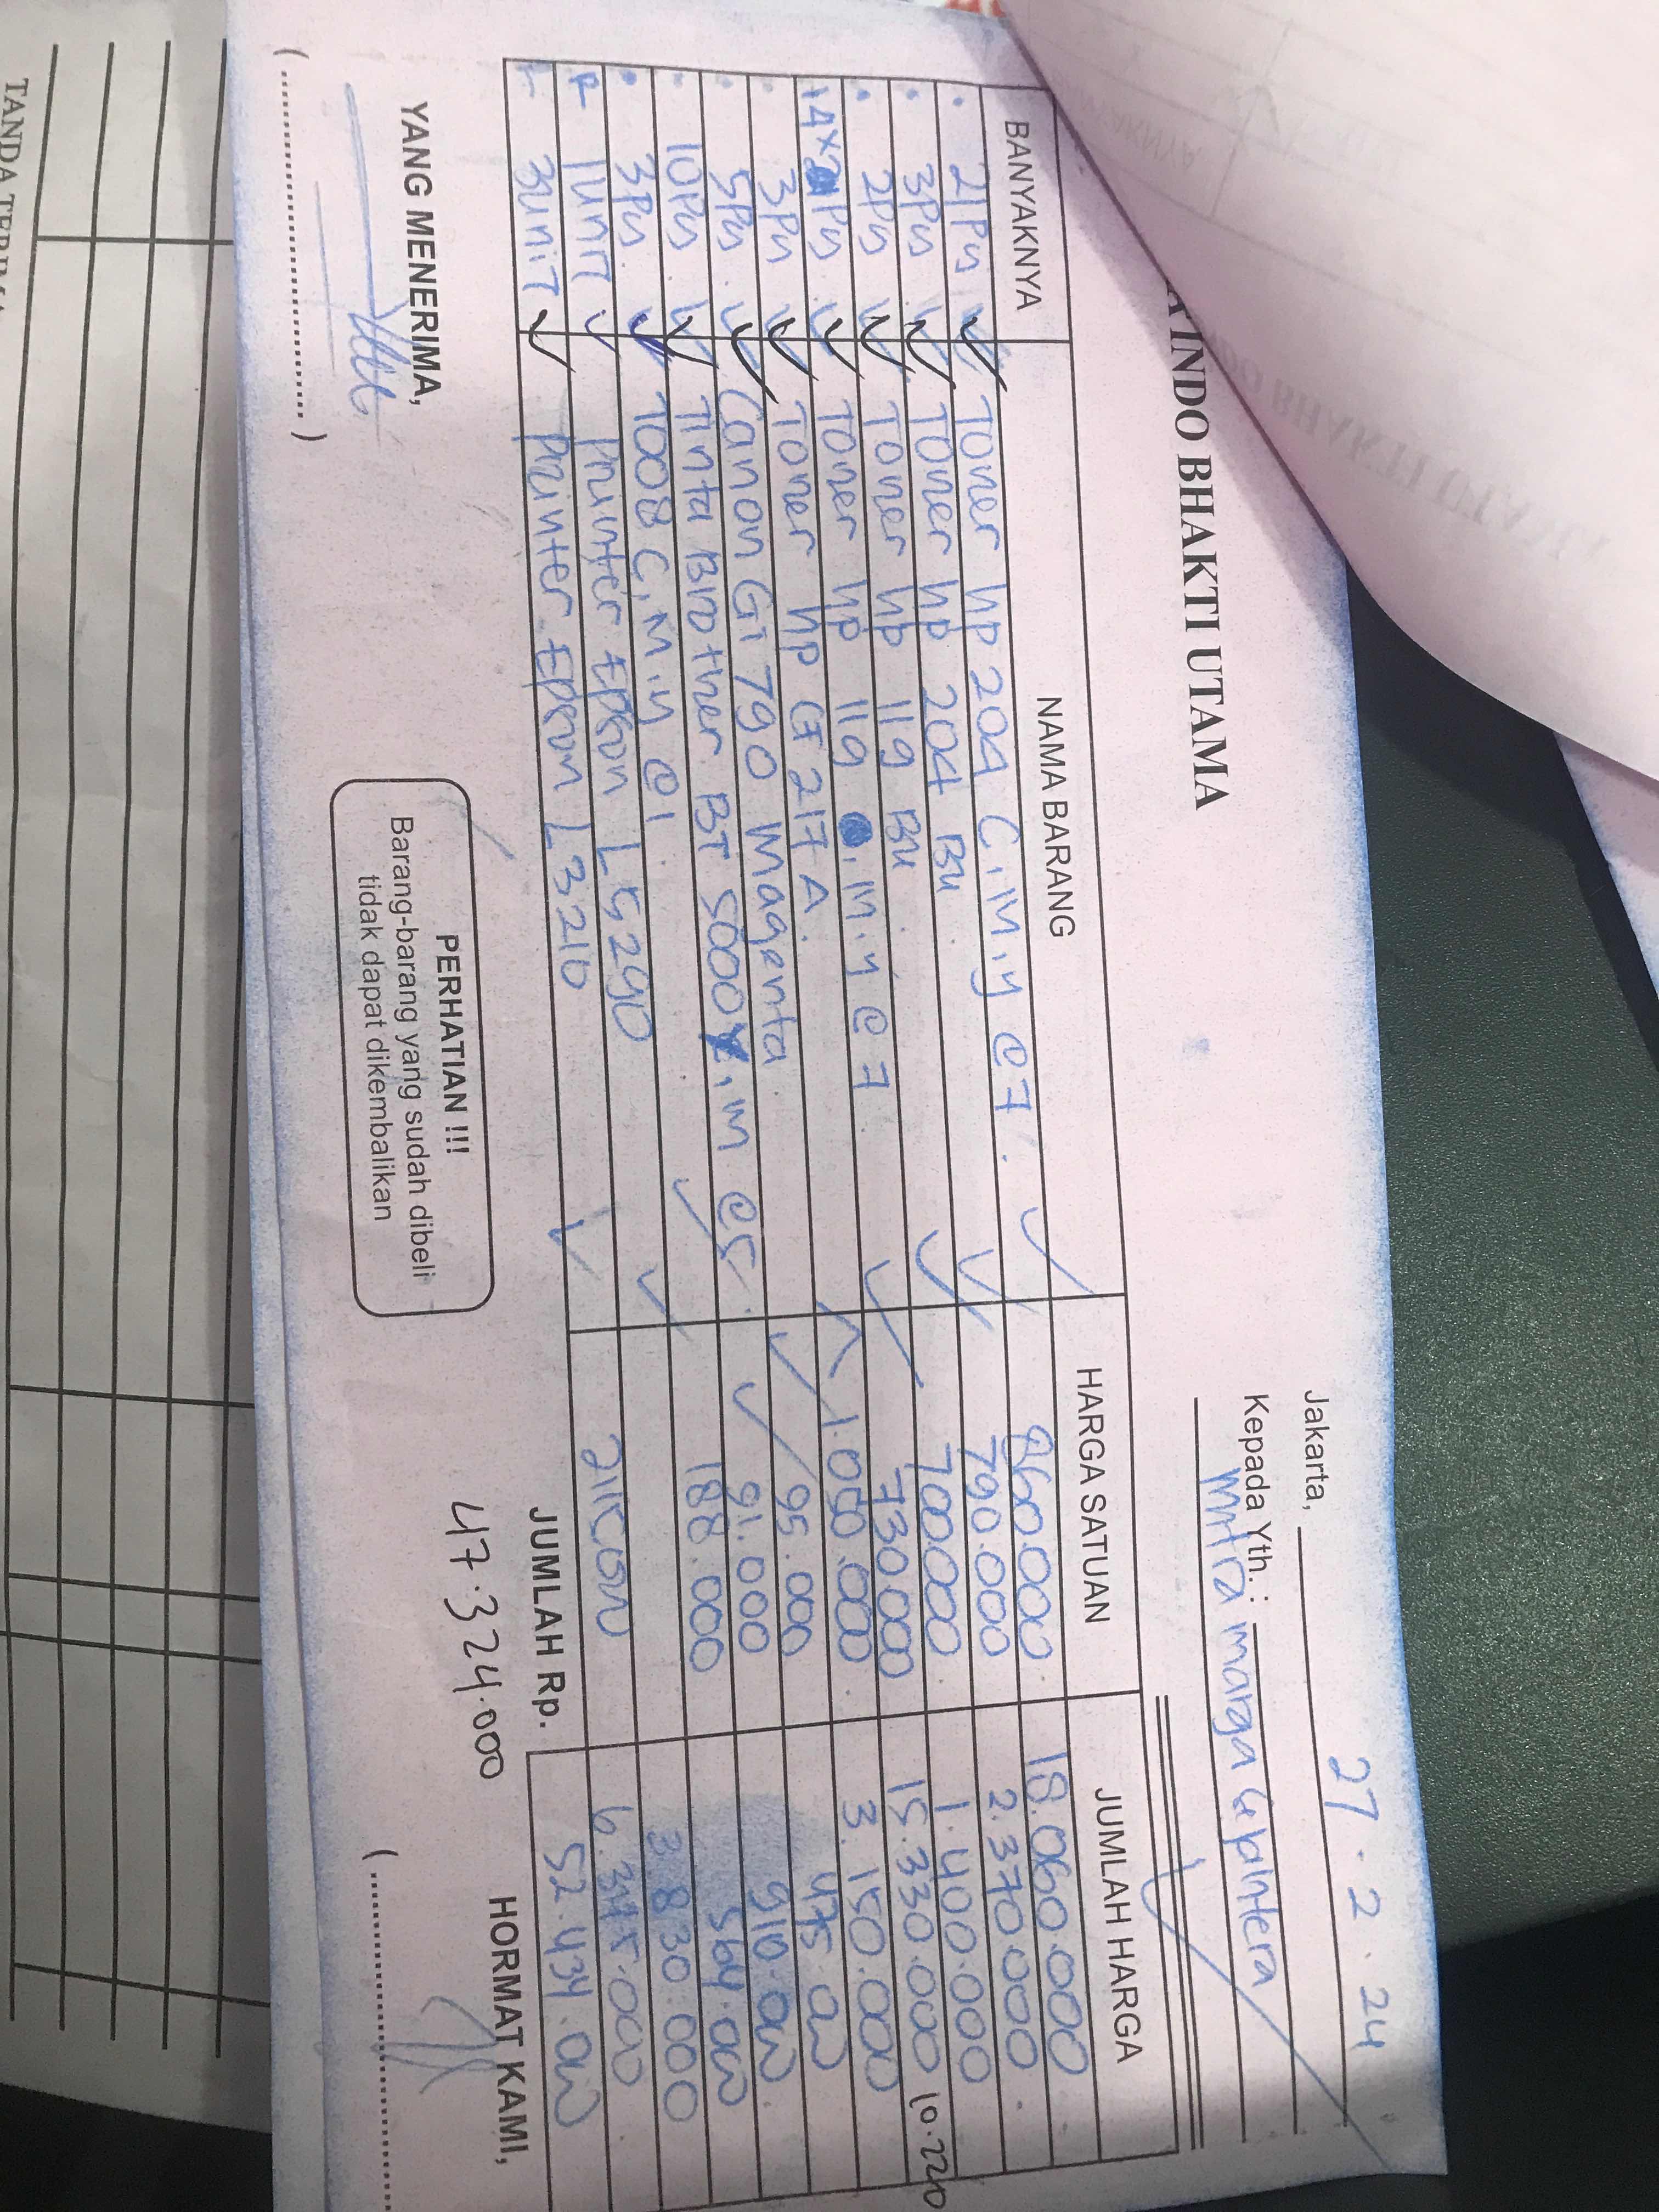 INDO BHAKTI UTAMA
27.2.24
Jakarta,
Kepada Yth. :
mitra marga
BANYAKNYA NAMA BARANG HARGA SATUAN JUMLAH HARGA
21 Pcs Toner hp 204 C,M,y @7 860.000 18.060.000
3 Pcs Toner hp 204 BK 790.000 2.370.000
2 Pcs Toner hp 119 BK 700000 1.400.000
14 Pcs Toner hp 119 M.y @7 730000 15.330.000 10.220
3 Pcs Toner hp CF 217 A 1.050.000 3.150.000
5 Pcs Canon Gi 790 Magenta 95.000 475.000
10 Pcs Tinta Brother BT 5000 Y,M @5 91.000 910.000
3 Pcs T008 C,M,y @1 188.000 564.000
1 unit Printer Epson L5290 3.830.000
3 unit Printer Epson L3210 2115000 6.345.000
JUMLAH Rp. 52.434.000
47.324.000
YANG MENERIMA,
PERHATIAN !!!
Barang-barang yang sudah dibeli
tidak dapat dikembalikan
HORMAT KAMI,
(....................)
(....................
TANDA